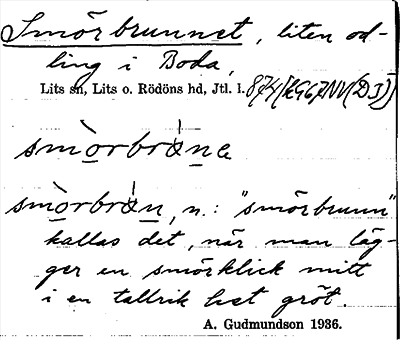 Smörbrunnet, liten od-
ling i Boda,
Lits sn, Lits o. Rödöns hd, Jtl. l. 874
smòrbránα
smòrbrán, n.: "smörbrunn"
kallas det, när man läg-
ger en smörklick mitt
i en tallrik het gröt.
A. Gudmundson 1936.